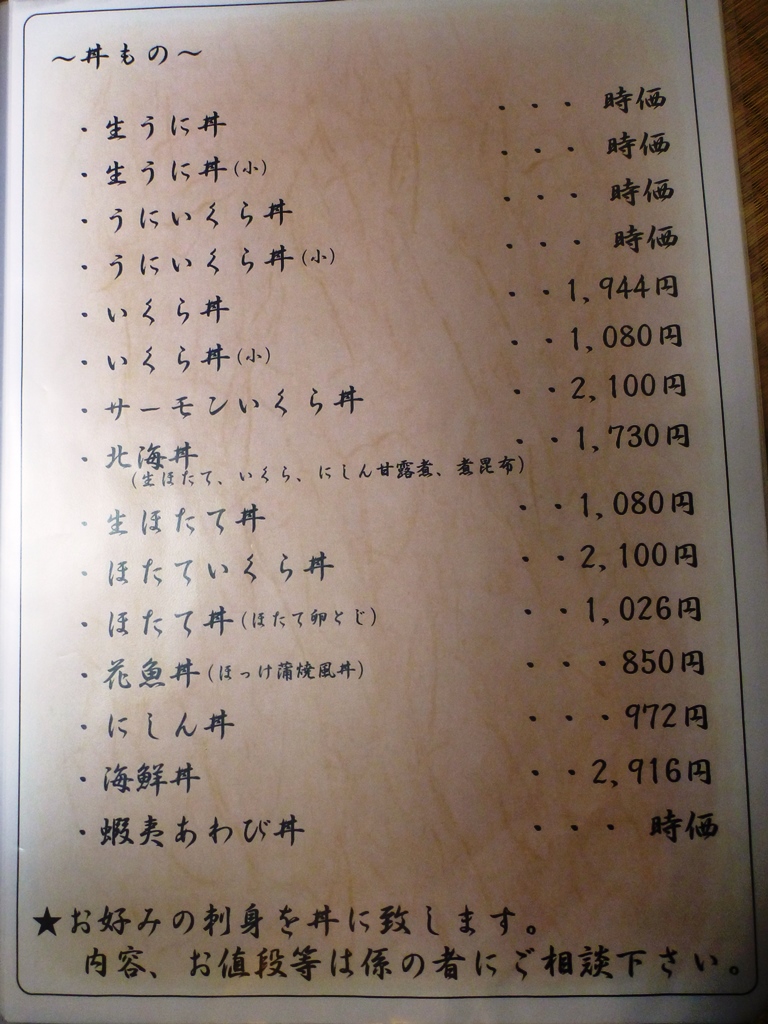 ～丼もの～
・生うに丼 ・・・ 時価
・生うに丼(小) ・・・ 時価
・うにいくら丼 ・・・ 時価
・うにいくら丼(小) ・・・ 時価
・いくら丼 ・・1,944円
・いくら丼(小) ・・1,080円
・サーモンいくら丼 ・・2,100円
・北海丼 ・・1,730円
(生ほたて、いくら、にしん甘露煮、煮昆布)
・生ほたて丼 ・・1,080円
・ほたていくら丼 ・・2,100円
・ほたて丼(ほたて卵とじ) ・・1,026円
・花魚丼(ほっけ蒲焼風丼) ・・・850円
・にしん丼 ・・・972円
・海鮮丼 ・・2,916円
・蝦夷あわび丼 ・・・ 時価
★お好みの刺身を丼に致します。
内容、お値段等は係の者にご相談下さい。